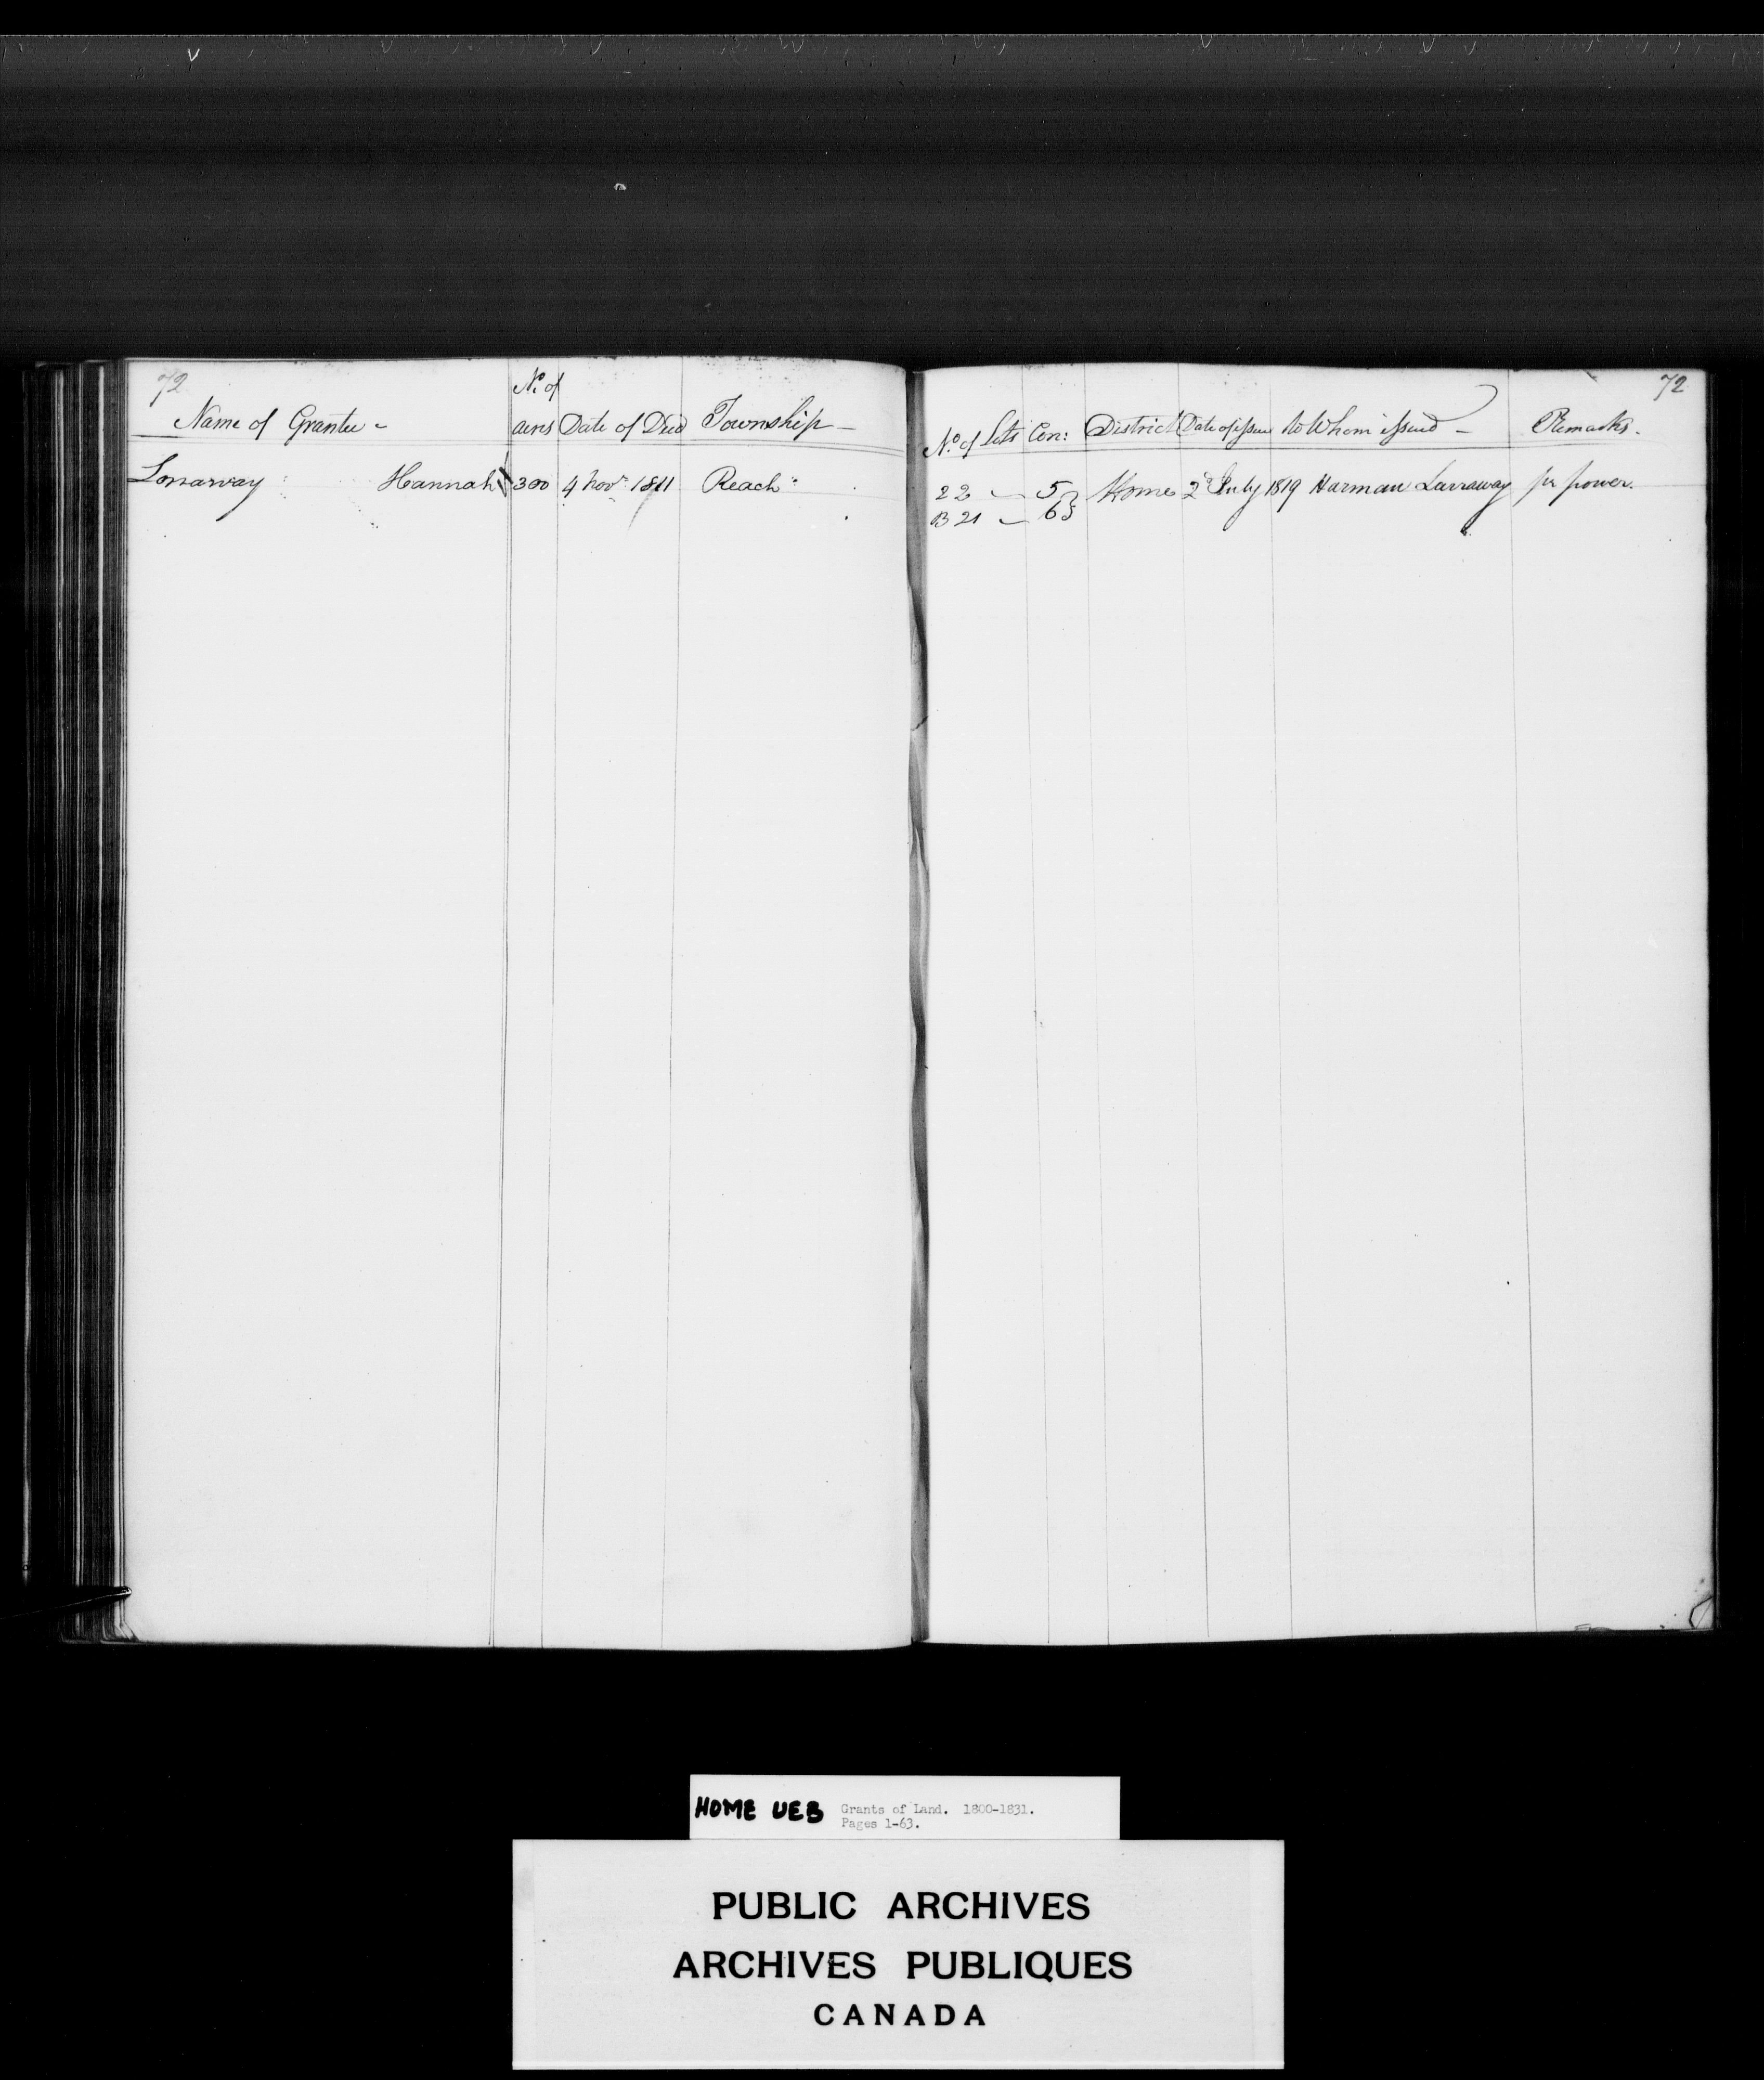 72
72
Name of Grantee - No. of acres Date of Deed Township - No. of Lots Con: District Date of issue to Whom issued - Remarks.
Lorrarway Hannah 300 4 Novr. 1811 Reach 22 - 5 Home 2d July 1819 Harman Larraway pr power.
B 21 - 6
HOME UEB Grants of Land. 1800-1831.
Pages 1-63.
PUBLIC ARCHIVES
ARCHIVES PUBLIQUES
CANADA